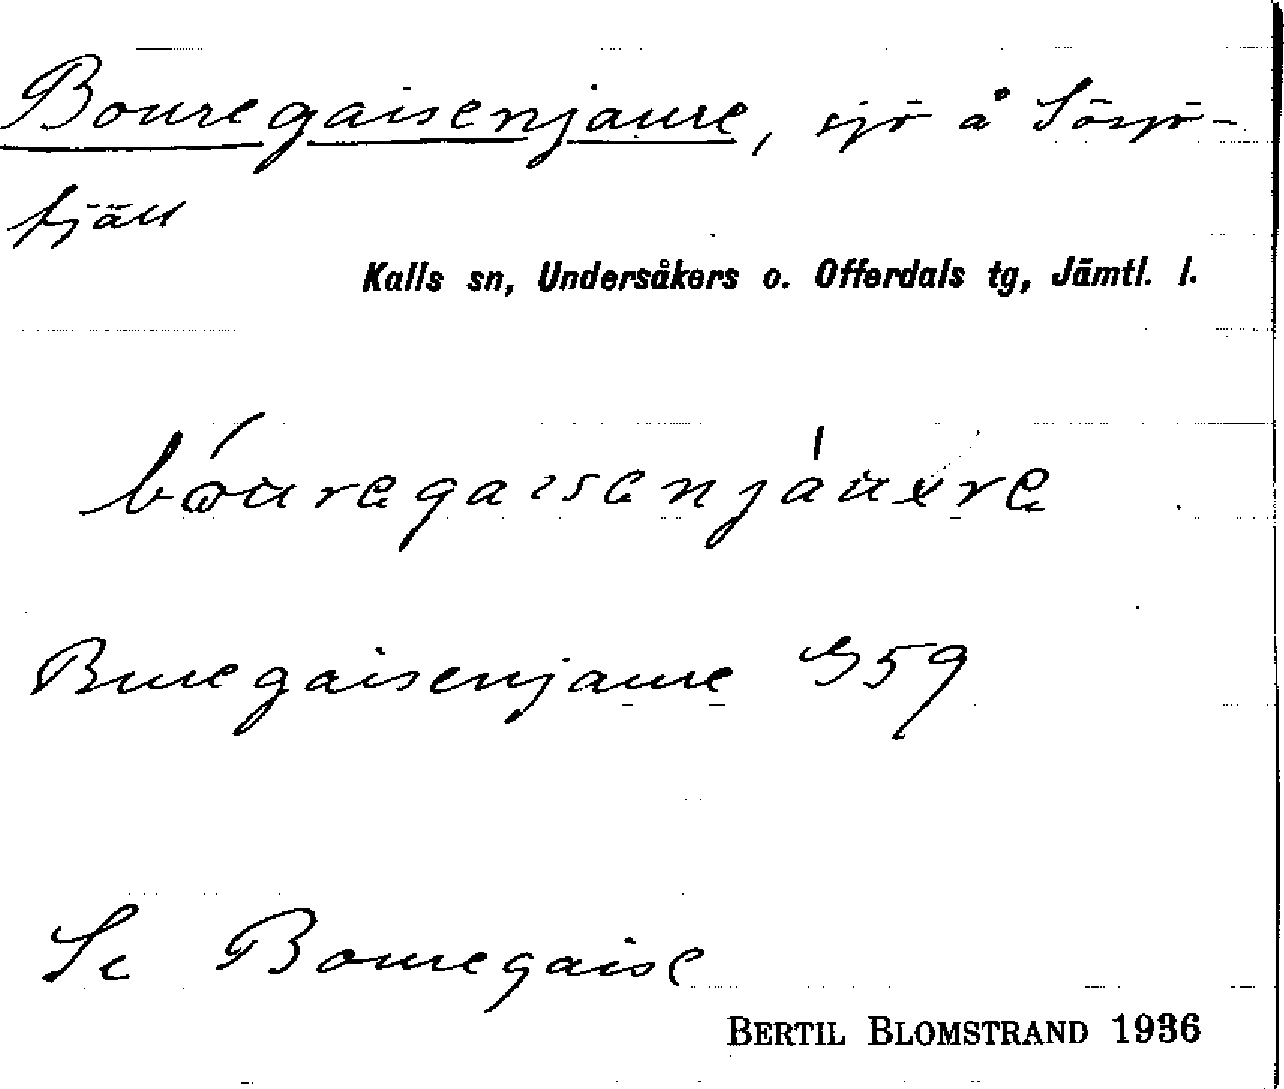 Bouregaisenjaure, sjö å Sösjö-
fjäll
Kalls sn, Undersåkers o. Offerdals tg, Jämtl. l.
bóuregaisenjàuxre
Buregaisenjaure S59
Se Bouregaise
BERTIL BLOMSTRAND 1936